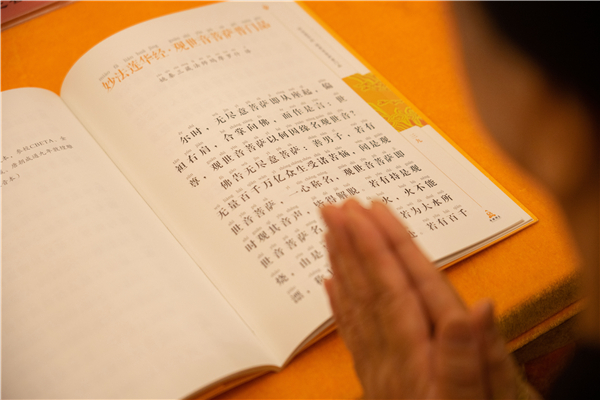 妙法莲华经·观世音菩萨普门品
姚秦三藏法师鸠摩罗什 译
尔时，无尽意菩萨即从座起，偏
袒右肩，合掌向佛，而作是言：世
尊，观世音菩萨以何因缘名观世音？
佛告无尽意菩萨：善男子，若有
无量百千万亿众生受诸苦恼，闻是观
世音菩萨，一心称名，观世音菩萨即
时观其音声，皆得解脱。若有持是观
世音菩萨名 火，火不能
烧，由是 若为大水所
漂， 处。若有百千